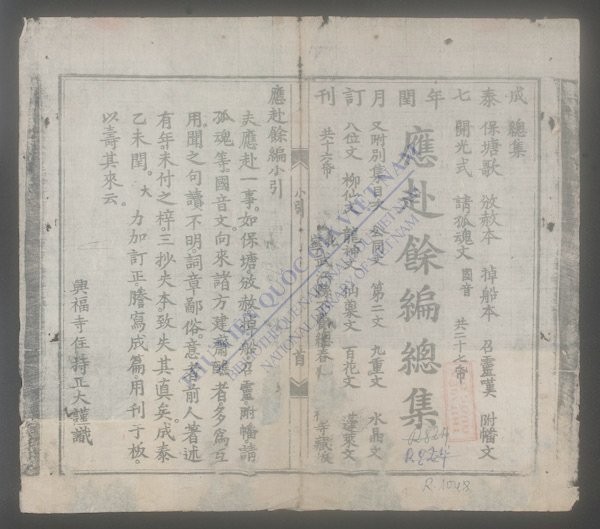 成泰七年閏月訂刊
總集
保塘歌 放赦本 掉船本 召靈嘆 附幡文
開光式 請孤魂文 國音 共二十七帋
應赴餘編總集
又附別集目次 公同文 第二文 九重文 水晶文
八位文 柳仙文 龍神文 仙藥文 百花文 蓬萊文
共十六帋
小引 首
應赴餘編小引
夫應赴一事。如保塘放赦掉船召靈附幡請
孤魂等國音文。向來諸方建齋醮者多爲互
用。聞之句讀不明。詞章鄙俗。意者前人著述
有年。未付之梓。三抄失本。致失其真矣。成泰
乙未閏。大 力加訂正。謄寫成篇。用刊于板。
以壽其來云。
興福寺住持正大謹識
THƯ VIỆN QUỐC GIA VIỆT NAM
NATIONAL LIBRARY OF VIETNAM
R.1048